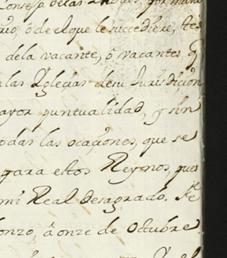 Consejo de las
rio, ó de el que le succediere,
de la vacante, ó vacantes q
las Yglesias de su Jurisdicion
ayor puntualidad, y sin
odas las ocasiones, que se
para estos Reynos, pues
mi Real Desagrado. Fe
onzo, á onze de Octubre